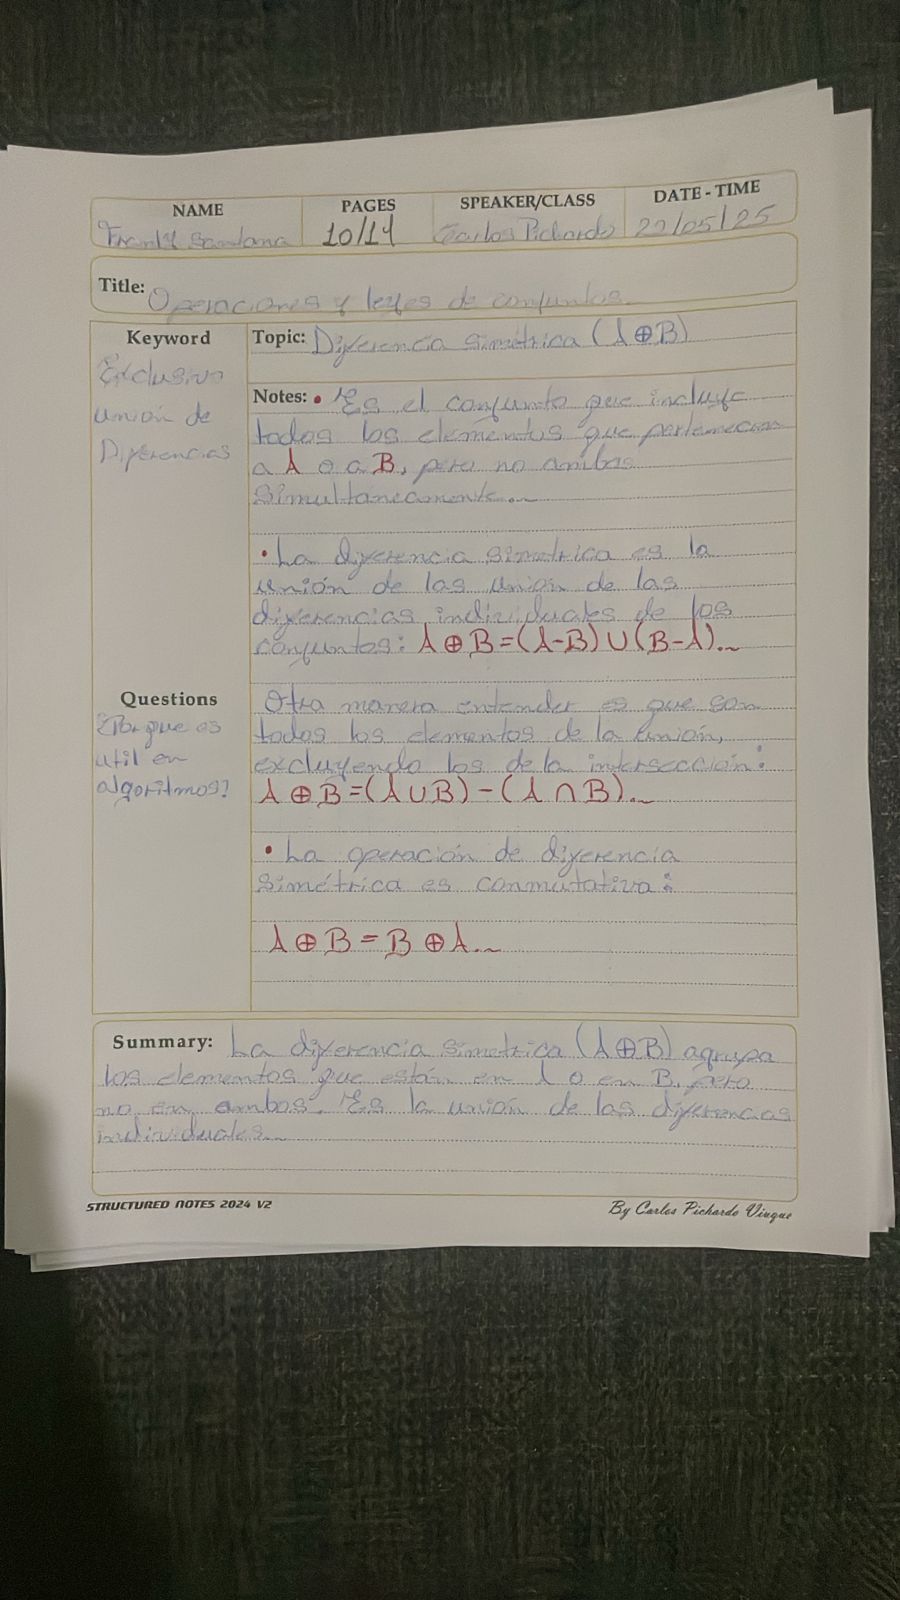 NAME PAGES SPEAKER/CLASS DATE - TIME
Santana 10/14 Carlos Pichardo 22/05/25
Title: Operaciones y leyes de conjuntos.
Keyword
Exclusivo
unión de
Diferencias
Topic: Diferencia simétrica (A ⊕ B)
Notes: • Es el conjunto que incluye
todos los elementos que pertenecen
a A o a B, pero no ambos
simultáneamente..~
• La diferencia simetrica es la
unión de las unión de las
diferencias individuales de los
conjuntos: A ⊕ B = (A-B) ∪ (B-A)..~
Questions
¿Por que es
util en
algoritmos?
Otra manera entender es que son
todos los elementos de la unión,
excluyendo los de la intersección:
A ⊕ B = (A ∪ B) - (A ∩ B)..~
• La operación de diferencia
simétrica es conmutativa:
A ⊕ B = B ⊕ A..~
Summary: La diferencia simetrica (A ⊕ B) agrupa
los elementos que están en A o en B, pero
no en ambos. Es la unión de las diferencias
individuales..~
STRUCTURED NOTES 2024 V2 By Carlos Pichardo Viuque